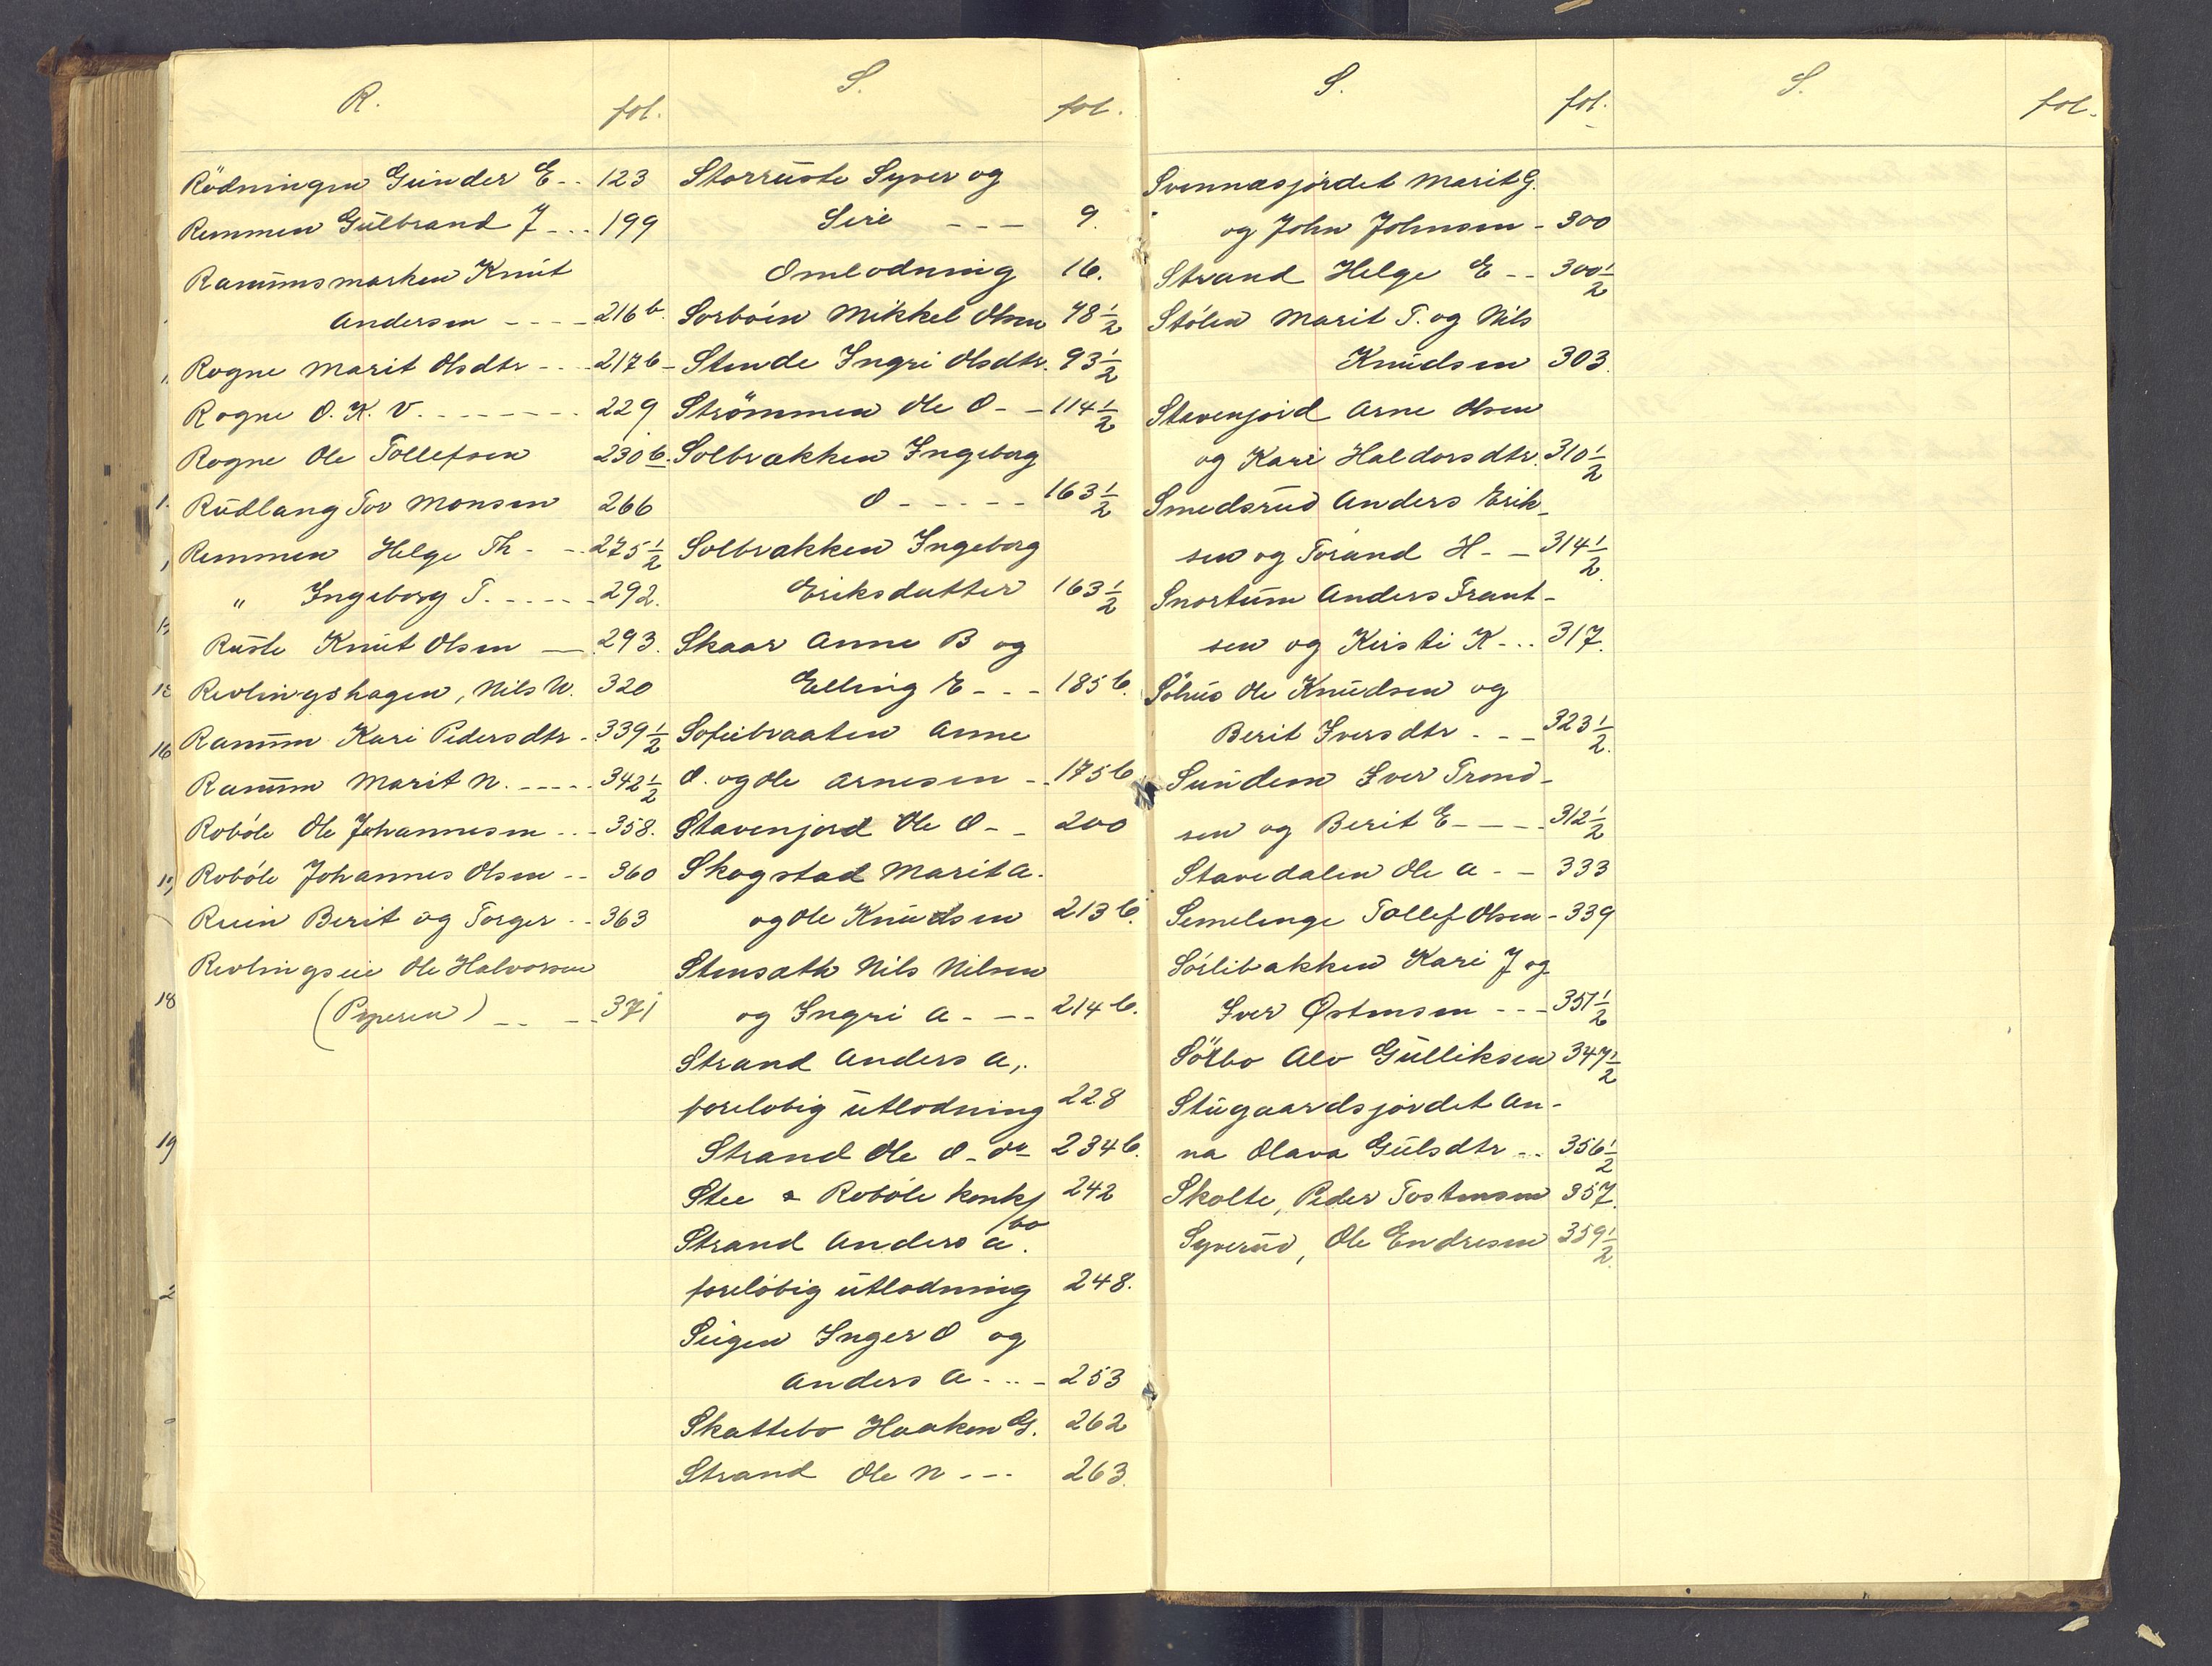 R.
fol.
Rödningen Gunder E - - 123
Remmen Gulbrand J - - - 199
Ranumsmarken Knut
Andersen - - - - 216 b.
Rogne Marit Olsdtr - - - 217 b
Rogne O. K. V. - - - - - - - 229
Rogne Ole Tollefsen 230 b.
Rudlang Tov Monsen 266
Remmen Helge Th - - 275 1/2
" Ingeborg T. - - - - - 292.
Ruste Knut Olsen — 293.
Revlingshagen, Nils N. 320
Ranum Kari Pedersdtr - 339 1/2
Ranum Marit N. - - - - - 342 1/2
Robøle Ole Johannesen - - - 358.
Robøle Johannes Olsen - - 360
Ruin Berit og Torger - - 363
Revlingseie Ole Halvorsen
- - - 371
S.
fol.
Storruste Syver og
Siri - - - 9.
Omlodning 16.
Sorbøen Mikkel Olsen 78 1/2
Stende Ingri Olsdtr. 93 1/2
Strömmen Ole O - - 114 1/2
Solbrækken Ingeborg
O - - - - - 163 1/2
Solbrækken Ingeborg
Eriksdatter 163 1/2
Skaar Anne B og
Elling E - - - 185 b.
Sofiibraaten Anne
O. og Ole Arnesen - - 175 b
Stavenjord Ole O - - 200
Skogstad Marit A.
og Ole Knudsen 213 b.
Stensæth Nils Nilsen
og Ingri A - - - 214 b.
Strand Anders A,.
foreløbig utlodning 228
Strand Ole O - do 234 b.
Stee & Robøle konks 242
bo
Strand Anders A.
foreløbig utlodning 248.
Sligen Inger O og
Anders A - .. - 253
Skattebo Haaken G. 262
Strand Ole N - - - 263.
S.
fol.
Svennæsjordet Marit G.
og John Johnsen - 300
Strand Helge E - - 300 1/2
Stølen Marit T. og Nils
Knudsen 303.
Stavenjord Arne Olsen
og Kari Haldorsdtr. 310 1/2
Smedsrud Anders Erik-
sen og Torand H - - 314 1/2.
Snortum Anders Frant-
sen og Kirsti K - .. 317.
Söhus Ole Knudsen og
Berit Iversdtr - - - 323 1/2.
Sundem Iver Trond-
sen og Berit E - - - - 312 1/2
Stavedalen Ole A - - 333
Semelenge Tollef Olsen - 339
Sørlibakken Kari J og
Iver Østensen - - - 351 1/2
Sörbo Alv Gulliksen 347 1/2
Stugaardsjordet An-
na Olava Gulsdtr - - 356 1/2
Skolte, Peder Tostensen 357.
Syverud, Ole Endresen 359 1/2.
S.
fol.